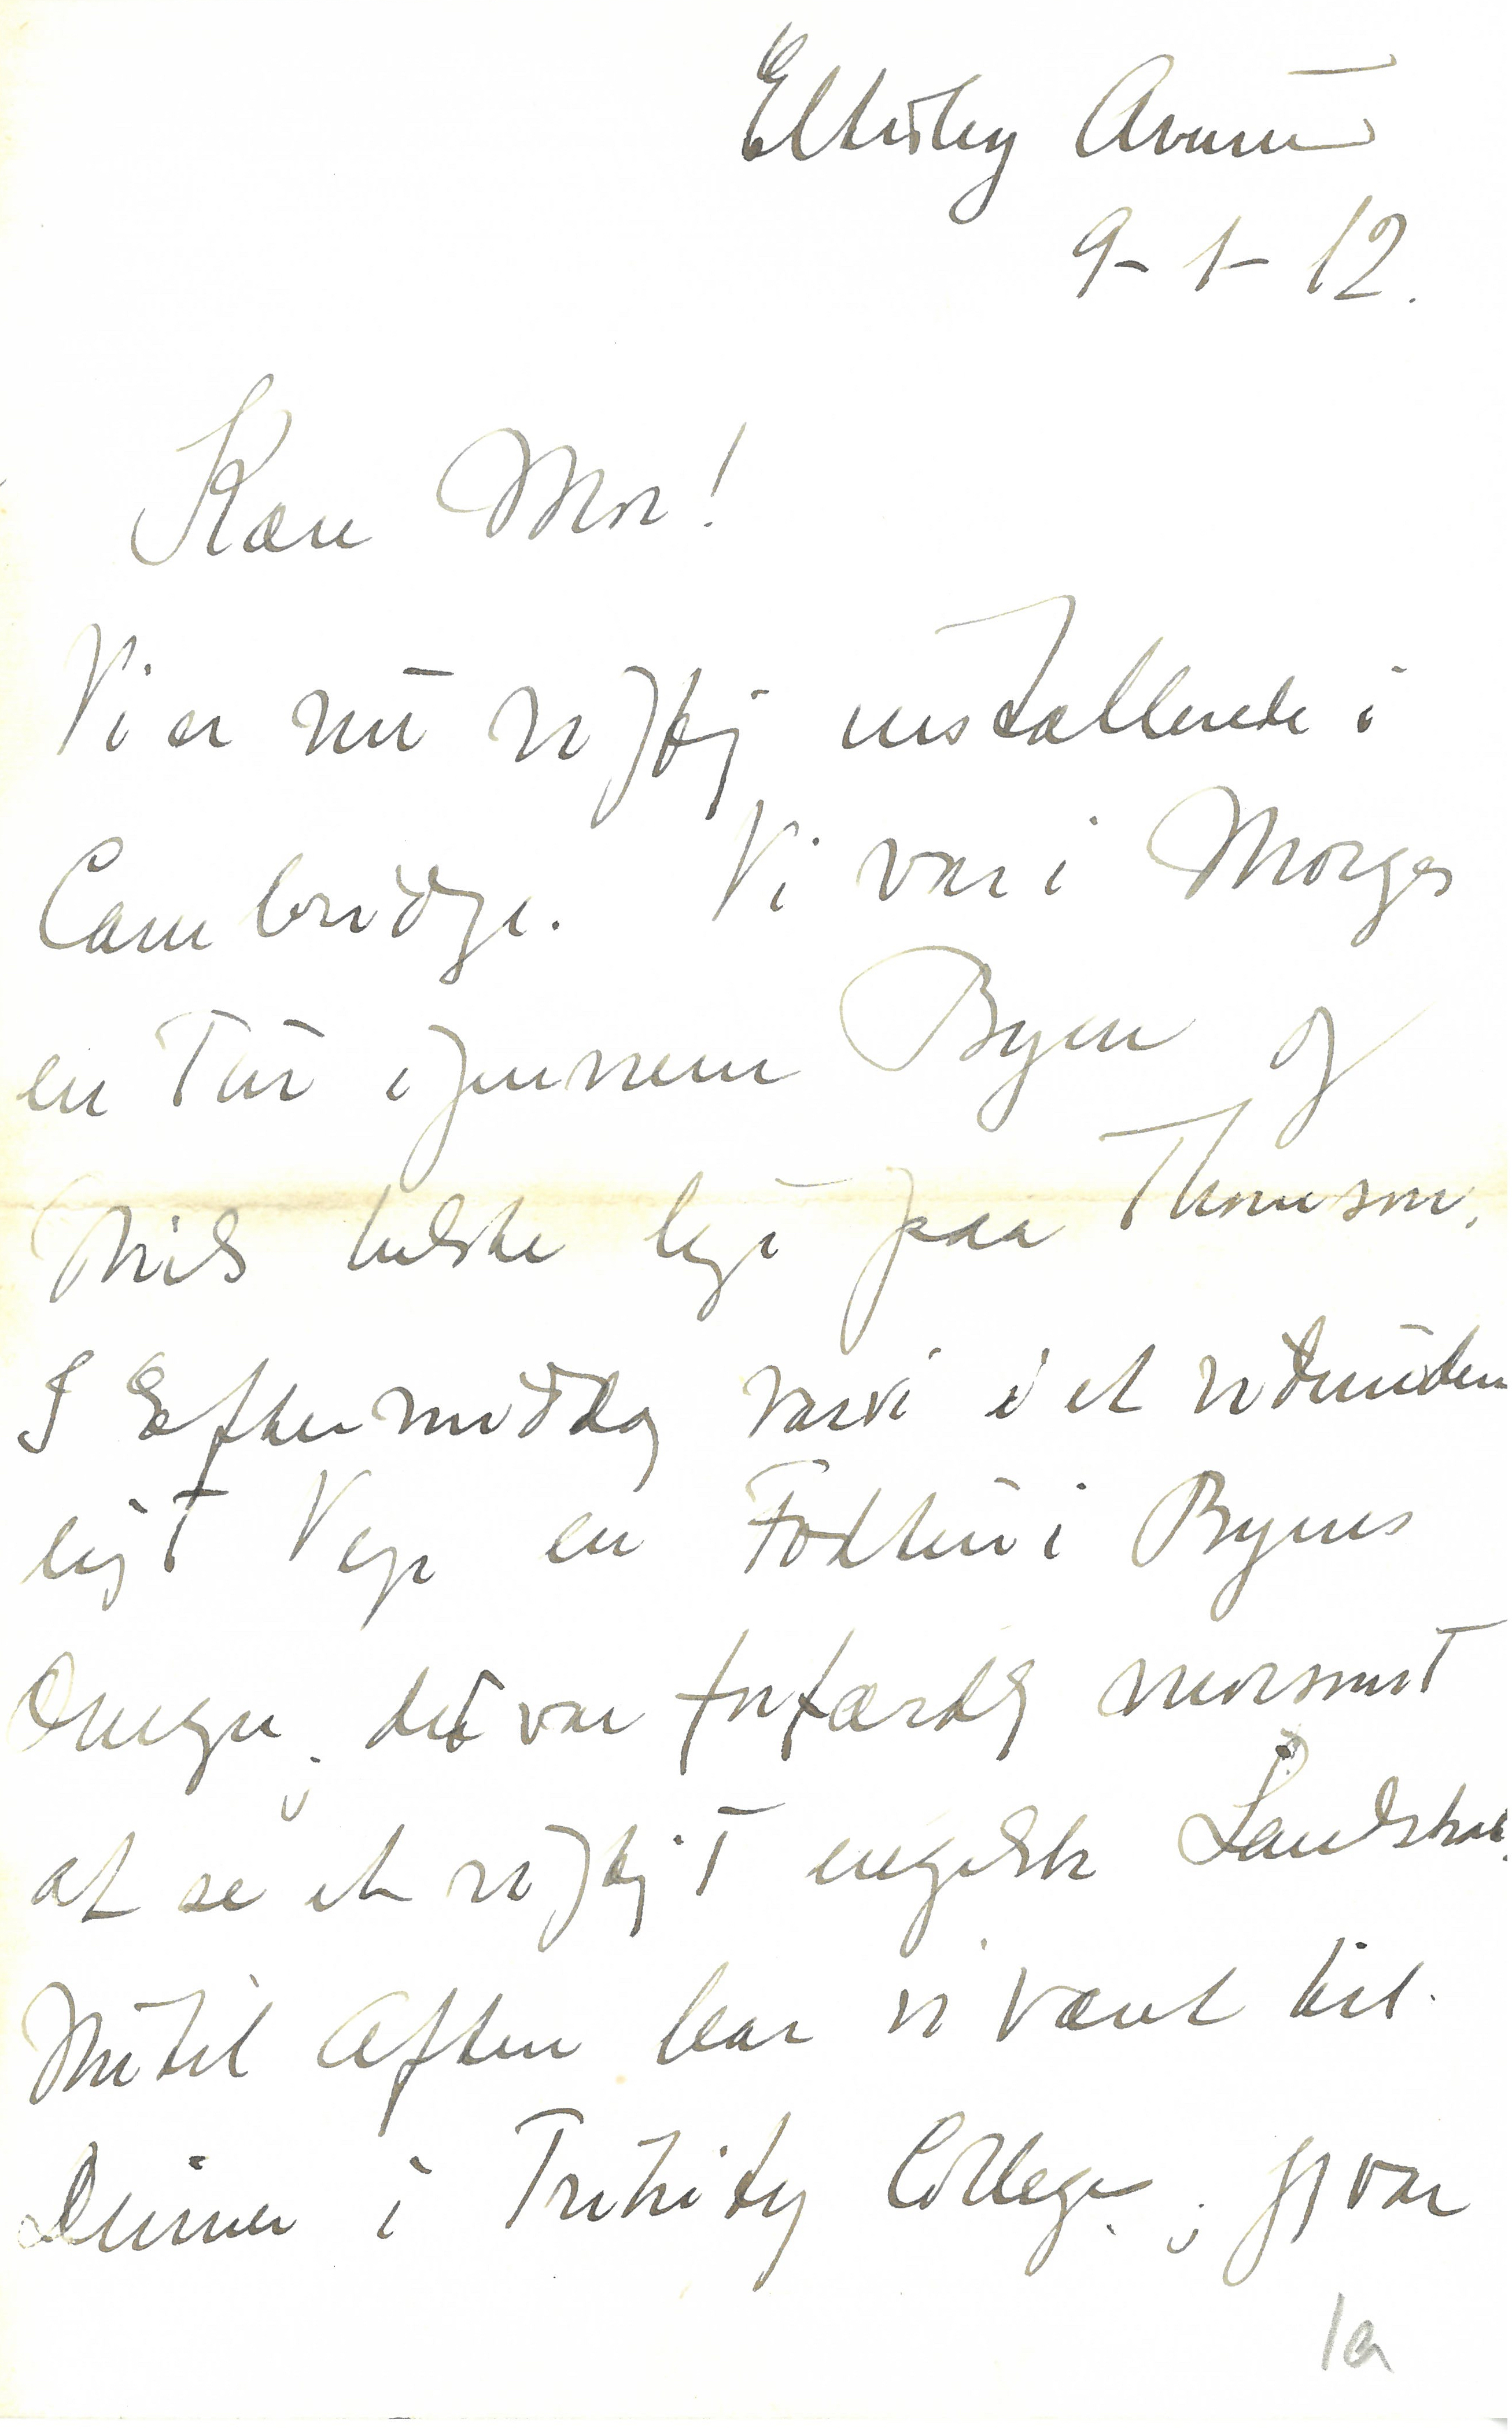 Eltisley Avenue
9-1-12.
Kære Mor!
Vi er nu rigtig installerede i
Cambridge. Vi var i Morges
en Tur igennem Byen og
Niels hilste lige paa Thomson.
I Eftermiddag var vi i et vidunder
ligt Vejr en Fodtur i Byens
Omegn; det var forfærdelig morsomt
at se et rigtigt engelsk Landskab.
Nu til Aften har vi været til
Dinner i Trinity College; jeg var
1a